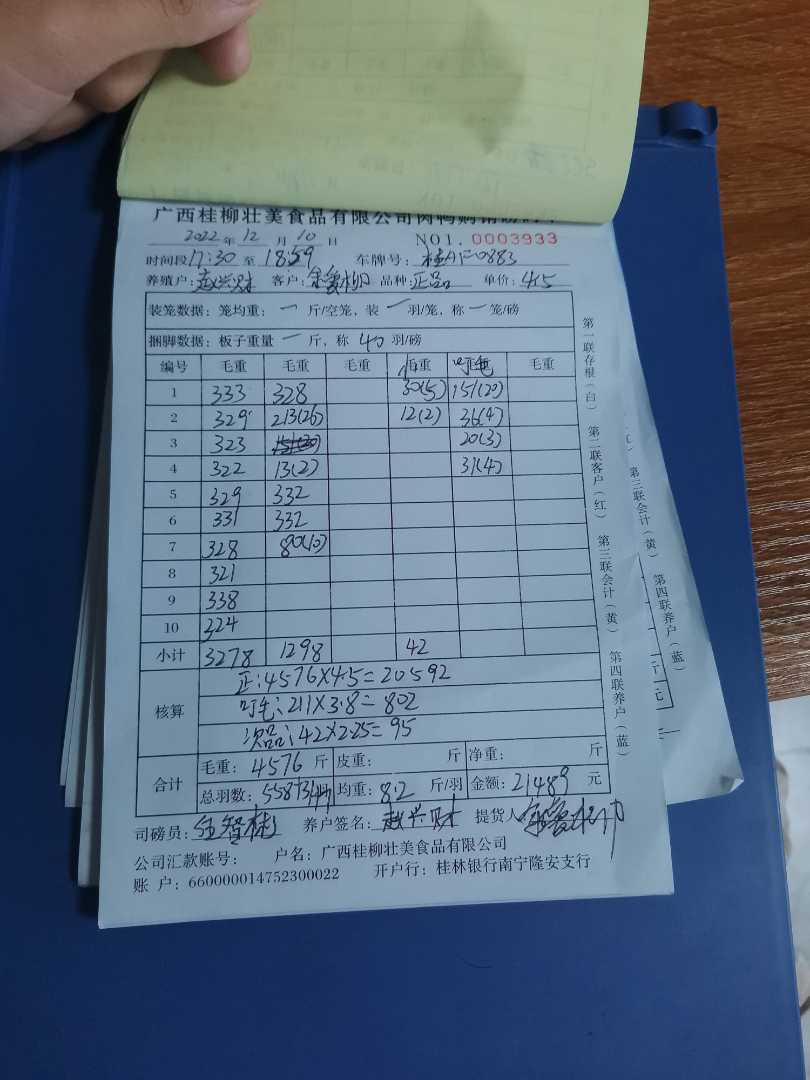 广西桂柳壮美食品有限公司肉鸭购销磅码单
2022年 12 月 10 日 NO1. 0003933
时间段17:30 至 18:59 车牌号:
养殖户: 赵兴财 客户: 品种: 正品 单价: 4.5
装笼数据: 笼均重: 一 斤/空笼, 装 一 羽/笼, 称 一 笼/磅
捆脚数据: 板子重量 一 斤, 称 40 羽/磅
编号 毛重 毛重 毛重 重 毛重
1 333 328 30(5) 151(20)
2 329 213(26) 12(2) 36(4)
3 323 20(3)
4 322 13(2) 31(4)
5 329 332
6 331 332
7 328 80(10)
8 321
9 338
10 324
小计 3278 1298 42
核算
正:4576×4.5=20592
叮毛:211×3.8=802
次品:42×2.25=95
合计
毛重: 4576 斤 皮重: 斤 净重: 斤
总羽数: 558 均重: 8.2 斤/羽 金额: 21489 元
司磅员: 养户签名: 赵兴财 提货人
公司汇款账号: 户名: 广西桂柳壮美食品有限公司
账 户: 660000014752300022 开户行: 桂林银行南宁隆安支行
第一联存根(白) 第二联客户(红) 第三联会计(黄) 第四联养户(蓝)
第三联会计(黄) 第四联养户(蓝)
斤
元